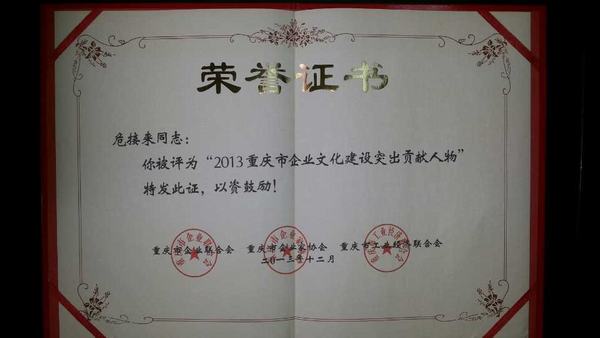 荣誉证书
危接来同志：
你被评为“2013重庆市企业文化建设突出贡献人物”
特发此证，以资鼓励！
重庆市企业联合会 重庆市企业家协会 重庆市工业经济联合会
二〇一三年十二月